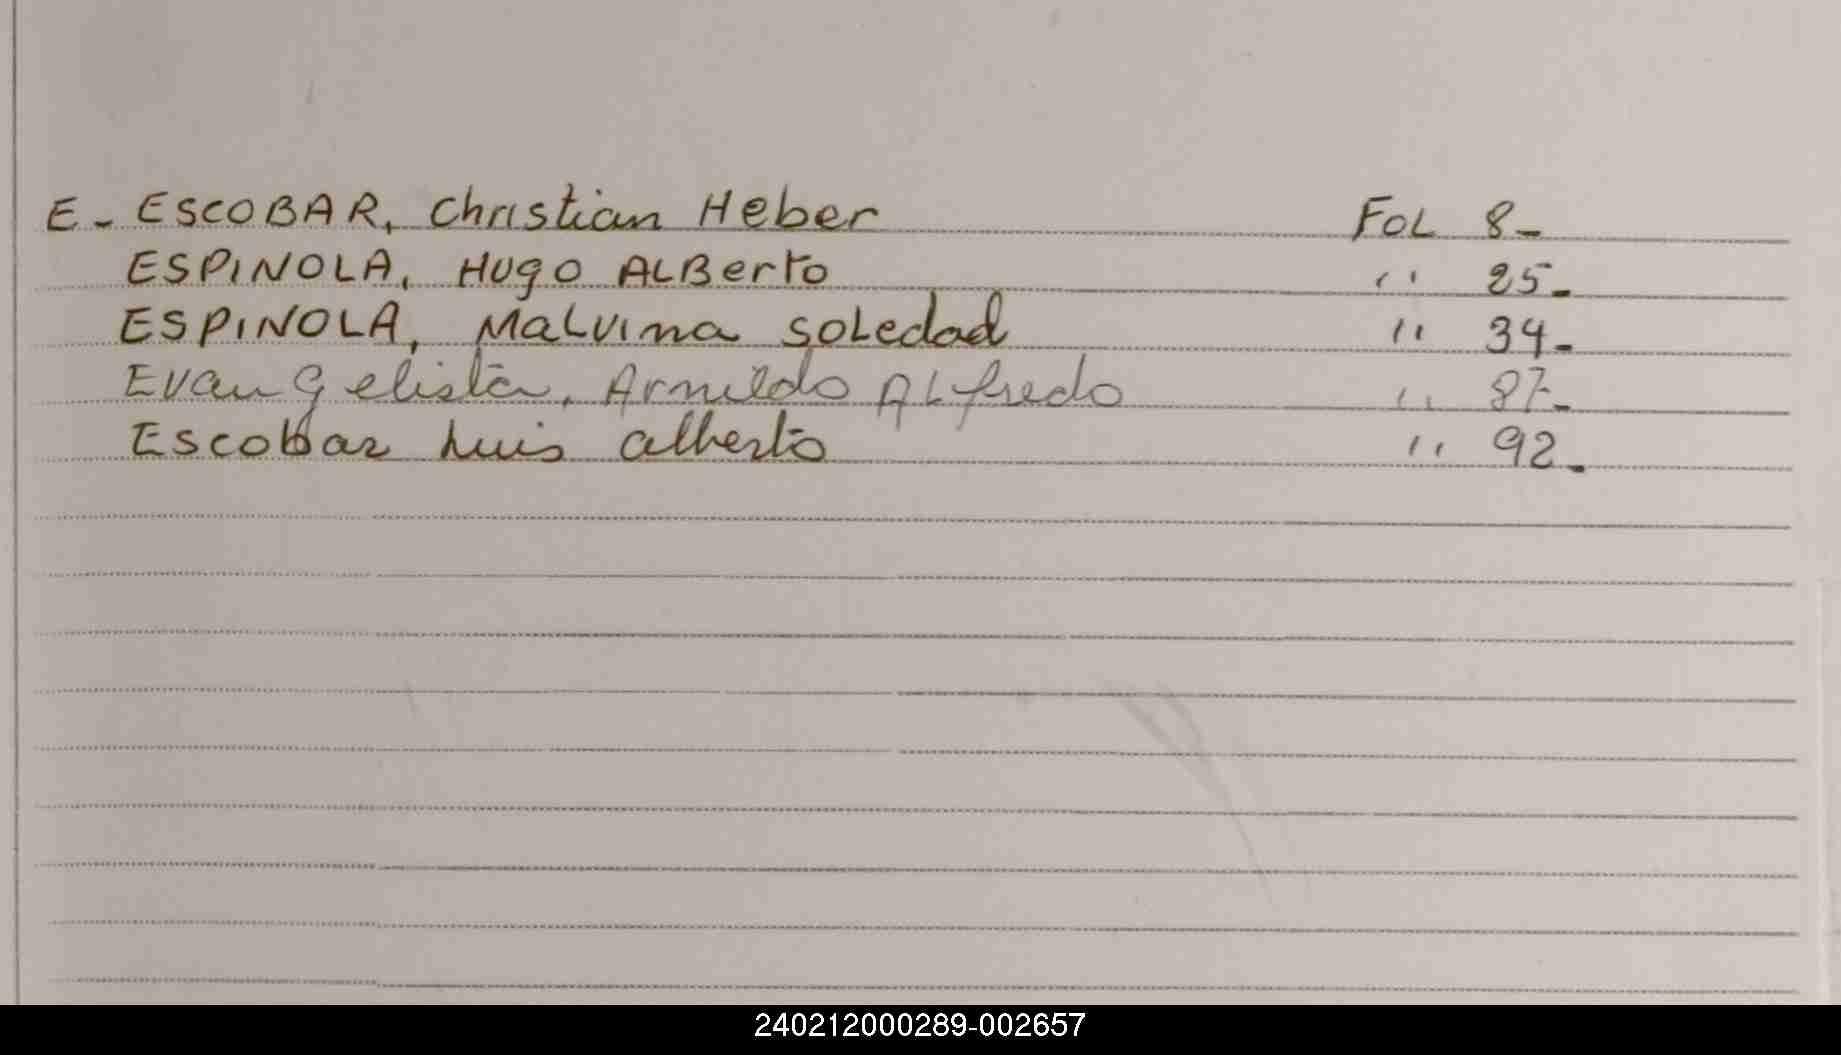 E- ESCOBAR, Christian Heber FOL 8-
ESPINOLA, HUgO ALBerto '' 25-
ESPINOLA, MaLvina soLedad '' 34-
Evangelista, Arnildo ALfredo '' 87-
Escobar Luis alberto '' 92-
240212000289-002657